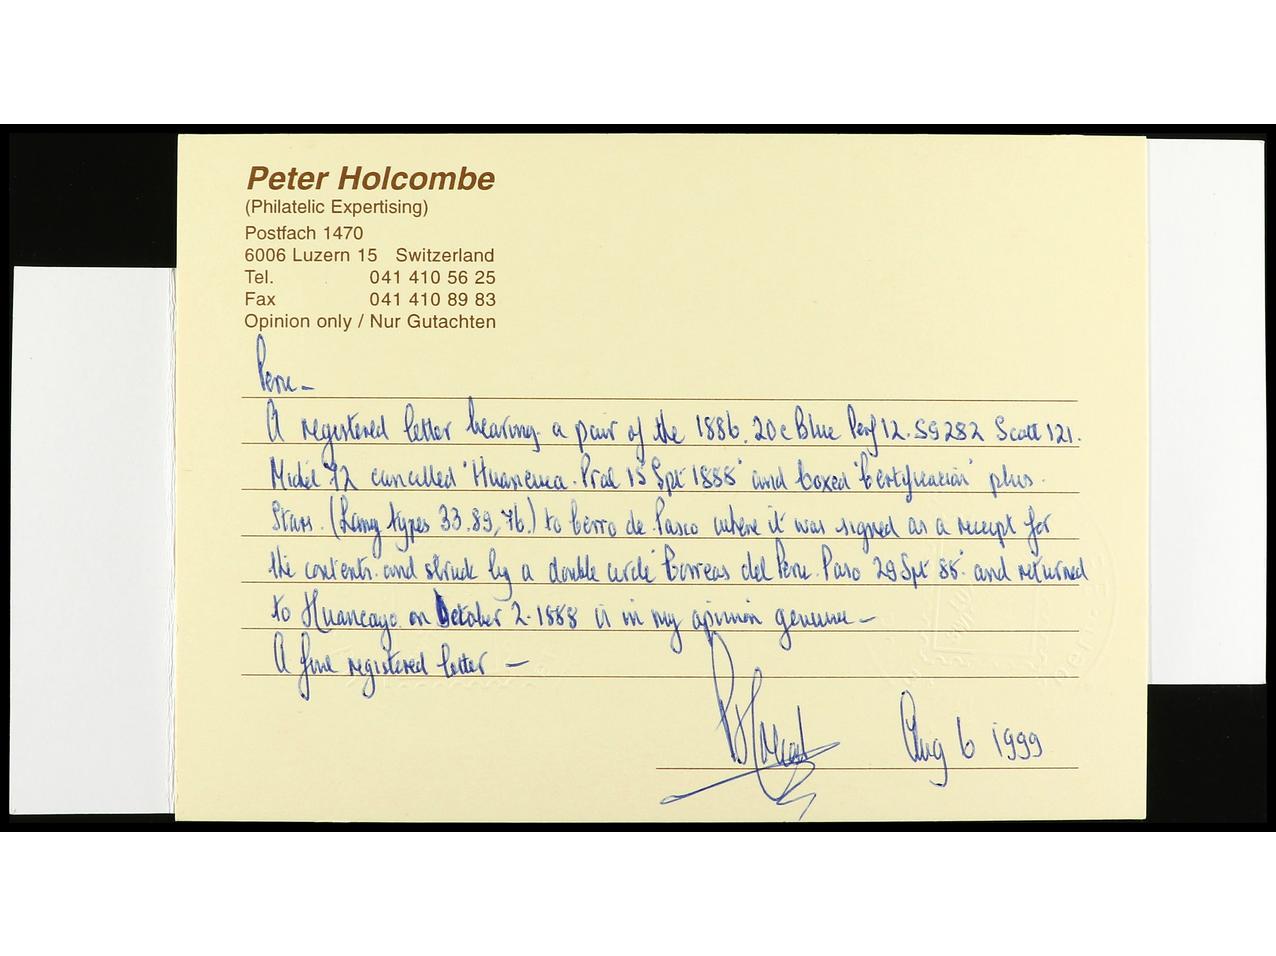 Peter Holcombe
(Philatelic Expertising)
Postfach 1470
6006 Luzern 15 Switzerland
Tel. 041 410 56 25
Fax 041 410 89 83
Opinion only / Nur Gutachten
Peru –
A registered letter bearing a pair of the 1886. 20c Blue Perf 12. SG282 Scott 121.
Michel 72 cancelled 'Huancayo. Pral 15 Spt 1888' and boxed 'Certificacion' plus
Stars. (Lamy types 33.89,76.) to Cerro de Pasco where it was signed as a receipt for
the contents and struck by a double circle 'Correos del Peru. Pasco 29 Spt 88' and returned
to Huancayo on October 2. 1888 is in my opinion genuine –
A fine registered letter –
Aug 6 1999